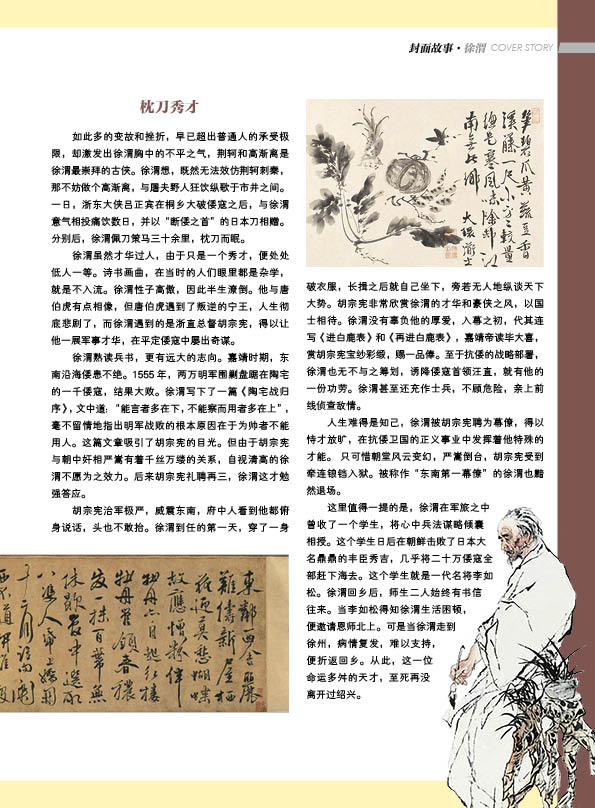 封面故事·徐渭 COVER STORY
枕刀秀才
如此多的变故和挫折，早已超出普通人的承受极
限，却激发出徐渭胸中的不平之气，荆轲和高渐离是
徐渭最崇拜的古侠。徐渭想，既然无法效仿荆轲刺秦，
那不妨做个高渐离，与屠夫野人狂饮纵歌于市井之间。
一日，浙东大侠吕正宾在桐乡大破倭寇之后，与徐渭
意气相投痛饮数日，并以“断倭之首”的日本刀相赠。
分别后，徐渭佩刀策马三十余里，枕刀而眠。
徐渭虽然才华过人，由于只是一个秀才，便处处
低人一等。诗书画曲，在当时的人们眼里都是杂学，
就是不入流。徐渭性子高傲，因此半生潦倒。他与唐
伯虎有点相像，但唐伯虎遇到了叛逆的宁王，人生彻
底悲剧了，而徐渭遇到的是浙直总督胡宗宪，得以让
他一展军事才华，在平定倭寇中屡出奇谋。
徐渭熟读兵书，更有远大的志向。嘉靖时期，东
南沿海倭患不绝。1555 年，两万明军围剿盘踞在陶宅
的一千倭寇，结果大败。徐渭写下了一篇《陶宅战归
序》，文中道：“能言者多在下，不能察而用者多在上”，
毫不留情地指出明军战败的根本原因在于为帅者不能
用人。这篇文章吸引了胡宗宪的目光。但由于胡宗宪
与朝中奸相严嵩有着千丝万缕的关系，自视清高的徐
渭不愿为之效力。后来胡宗宪礼聘再三，徐渭这才勉
强答应。
胡宗宪治军极严，威震东南，府中人看到他都俯
身说话，头也不敢抬。徐渭到任的第一天，穿了一身
破衣服，长揖之后就自己坐下，旁若无人地纵谈天下
大势。胡宗宪非常欣赏徐渭的才华和豪侠之风，以国
士相待。徐渭没有辜负他的厚爱，入幕之初，代其连
写《进白鹿表》和《再进白鹿表》，嘉靖帝读毕大喜，
赏胡宗宪宝钞彩缎，赐一品俸。至于抗倭的战略部署，
徐渭也无不与之筹划，诱降倭寇首领汪直，就有他的
一份功劳。徐渭甚至还充作士兵，不顾危险，亲上前
线侦查敌情。
人生难得是知己，徐渭被胡宗宪聘为幕僚，得以
恃才放旷，在抗倭卫国的正义事业中发挥着他特殊的
才能。 只可惜朝堂风云变幻，严嵩倒台，胡宗宪受到
牵连锒铛入狱。被称作“东南第一幕僚”的徐渭也黯
然退场。
这里值得一提的是，徐渭在军旅之中
曾收了一个学生，将心中兵法谋略倾囊
相授。这个学生日后在朝鲜击败了日本大
名鼎鼎的丰臣秀吉，几乎将二十万倭寇全
部赶下海去。这个学生就是一代名将李如
松。徐渭回乡后，师生二人始终有书信
往来。当李如松得知徐渭生活困顿，
便邀请恩师北上。可是当徐渭走到
徐州，病情复发，难以支持，
便折返回乡。从此，这一位
命运多舛的天才，至死再没
离开过绍兴。